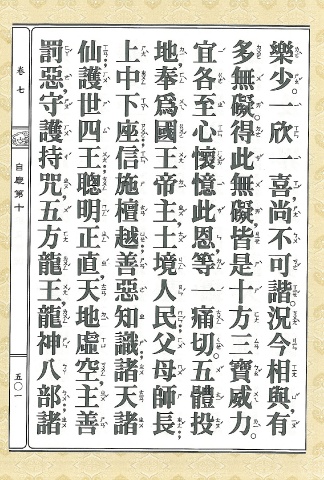 樂少。一欣一喜，尚不可諧。況今相與，有
多無礙。得此無礙，皆是十方三寶威力。
宜各至心，懷憶此恩，等一痛切，五體投
地，奉為國王帝主，土境人民，父母師長，
上中下座，信施檀越，善惡知識，諸天諸
仙，護世四王，聰明正直，天地虛空，主善
罰惡，守護持咒，五方龍王，龍神八部，諸
卷七
自慶第十
五〇一